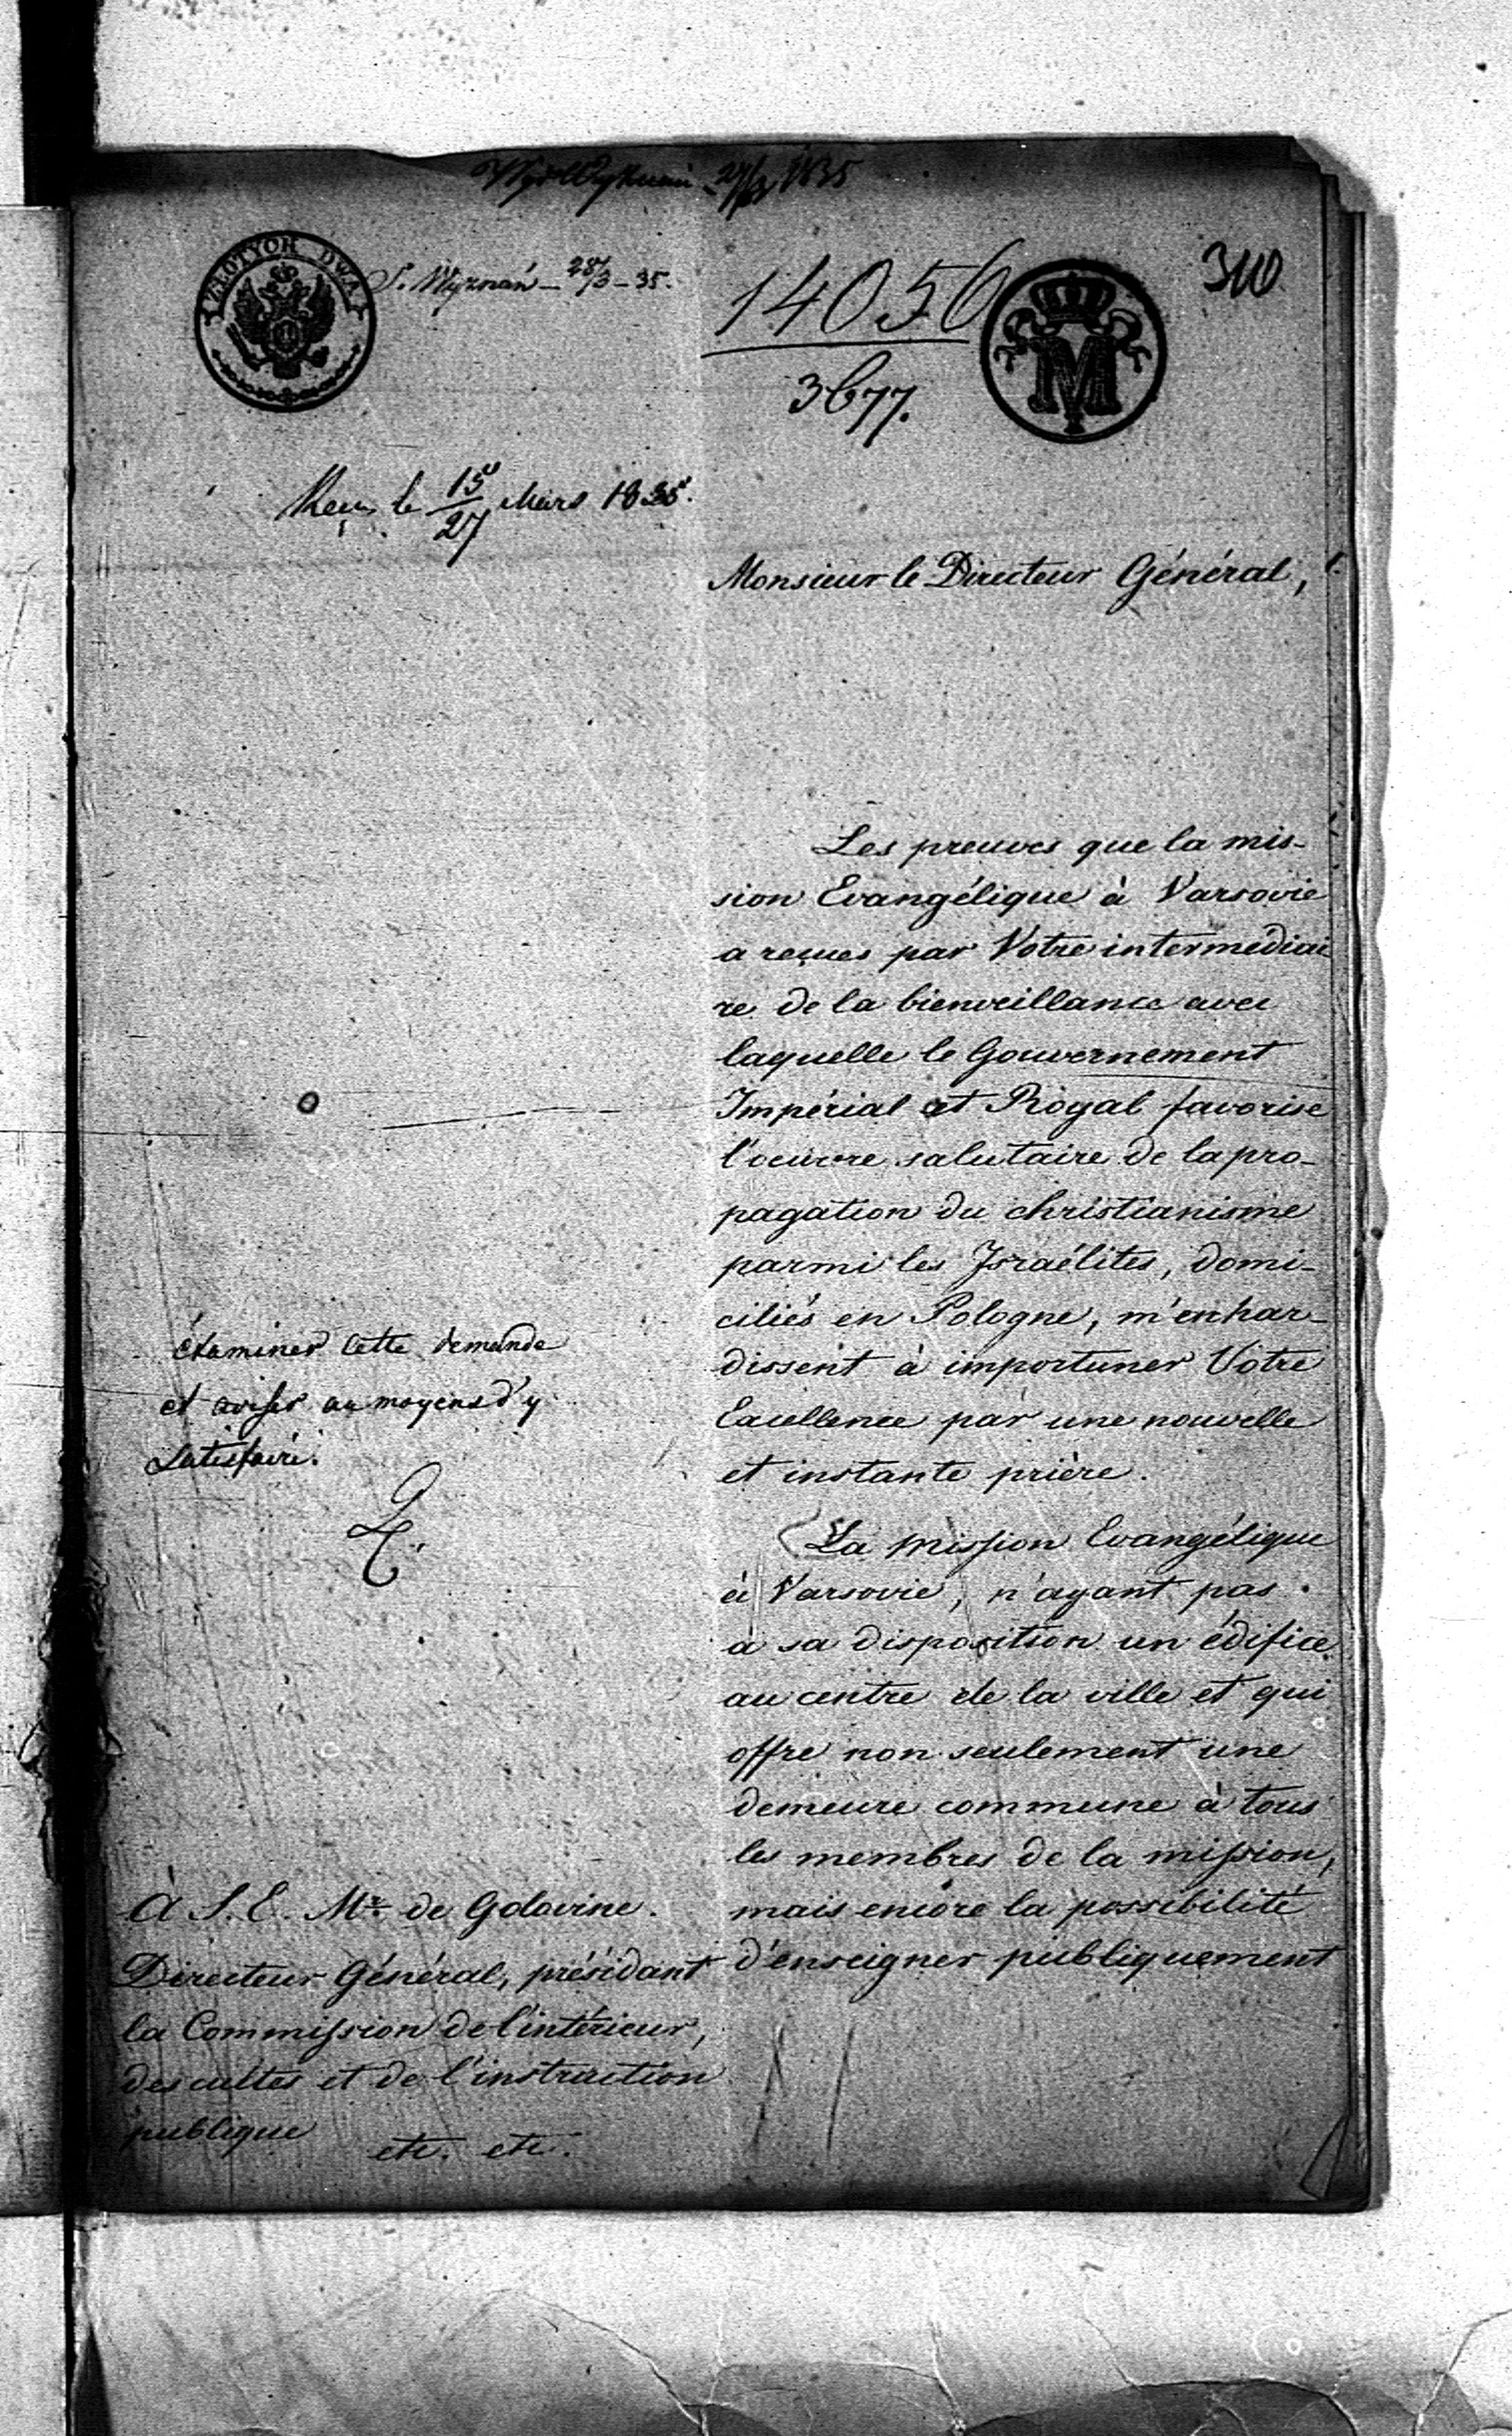 Wydz. Wyznań 27/3 1835
ZŁOTYCH DWA
S. Wyznań – 28/3 – 35.
14056
3677.
310
M
Reçu le 15/27 Mars 1835.
Monsieur le Directeur Général,
Les preuves que la mis-
sion Evangélique à Varsovie
a reçues par Votre intermediai
re de la bienveillance avec
laquelle le Gouvernement
Impérial et Royal favorise
l'oeuvre salutaire de la pro-
pagation du christianisme
parmi les Israélites, domi-
ciliés en Pologne, m'enhar-
dissent à importuner Votre
Excellence par une nouvelle
et instante prière.
La mission Evangélique
à Varsovie, n'ayant pas
a sa disposition un édifice
au centre de la ville et qui
offre non seulement une
demeure commune à tous
les membres de la mission,
mais encore la possibilité
d'enseigner publiquement
éxaminer cette demande
et aviser au moyens d'y
satisfaire.
À S. E. Mr. de Golovine.
Directeur Général, présidant
la Commission de l'intérieur,
des cultes et de l'instruction
publique
etc. etc.